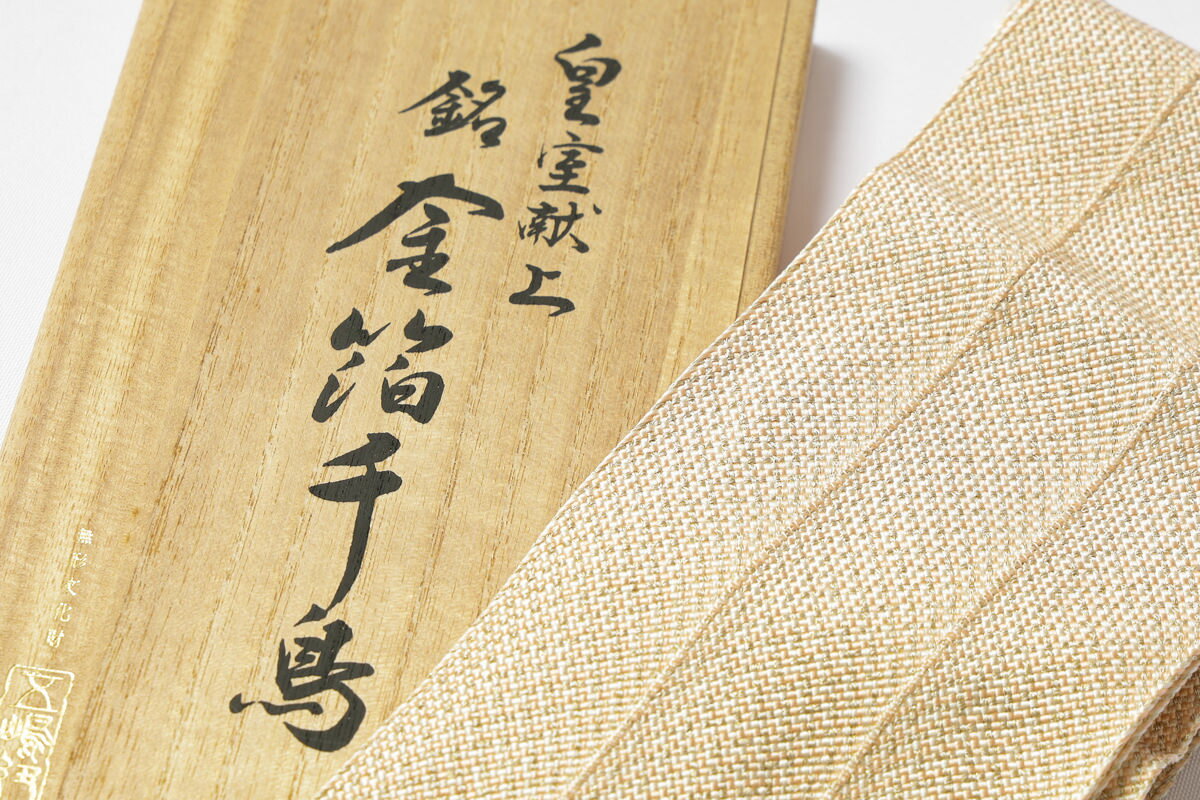 皇室献上
銘 金箔千鳥
無形文化財